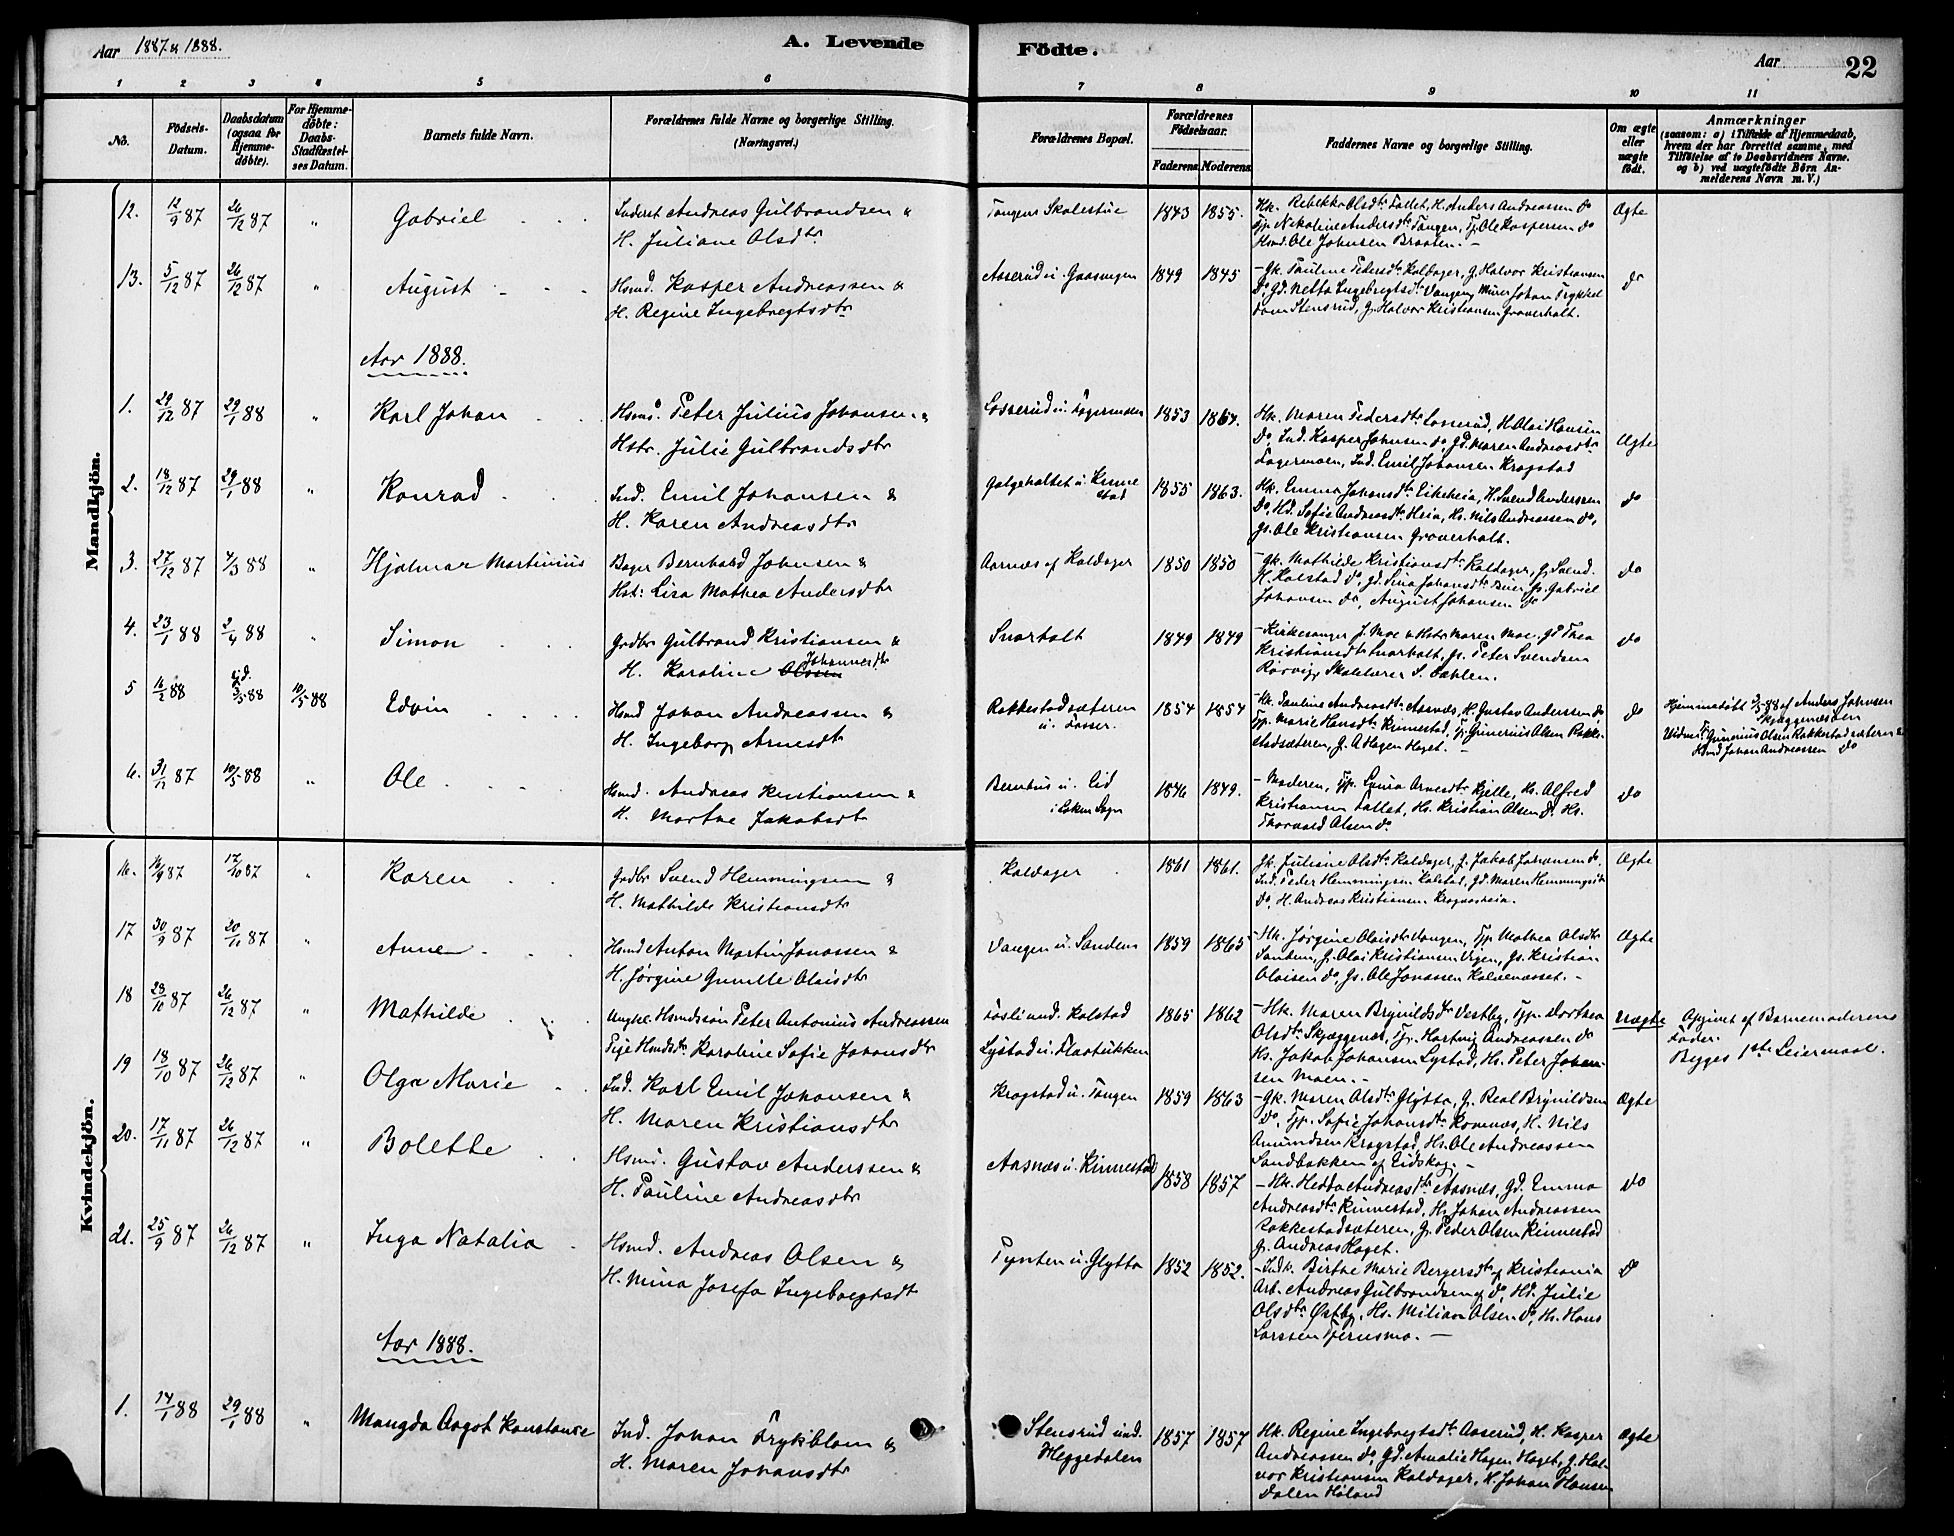 Aar 1887 & 1888.
A. Levende
Födte.
Aar
22
1 2 3 4 5 6 7 8 9 10 11
No.
Födsels-Datum.
Daabsdatum (ogsaa for Hjemmedöbte).
For Hjemmedöbte: Daabs-Stadfæstelses Datum.
Barnets fulde Navn.
Forældrenes fulde Navne og borgerlige Stilling. (Næringsvei.)
Forældrenes Bopæl.
Forældrenes Födselsaar.
Faderens Moderens
Faddernes Navne og borgerlige Stilling.
Om ægte eller uægte födt.
Anmærkninger
(saasom: a) i Tilfælde af Hjemmedaab, hvem der har forrettet samme, med Tilföielse af to Daabsvidners Navne. og b) ved uægtefödte Börn Anmelderens Navn m.V.)
Mandkjön.
12. 12/9 87 26/12 87 " Gabriel Inderst Andreas Gulbrandsen &
H. Juliane Olsdtr
Tangens Skolestue 1843 1855.
Hk. Rebekka Olsdtr Fallet, H. Anders Andreassen do
Tp. Nikoline Andersdtr Tangen, Tj. Ole Kaspersen do
Hsmd. Ole Johnsen Braaten.
Ægte
13. 5/12 87 26/12 87 " August Hsmd. Kasper Andreassen &
H. Regine Ingebregtsdtr
Aaserud u. Gaasvigen 1849 1845
Gk. Pauline Pedersdtr Kaldager, G. Halvor Kristiansen
do, Gd. Netta Ingebregtsdtr Vangen, Murer Johan Frykblom Stensrud, G. Halvor Kristiansen Graverholt.
do
Aar 1888.
1. 29/12 87 29/1 88 " Karl Johan Hsmd. Peter Julius Johansen &
Hstr. Julie Gulbrandsdtr
Losserud u. Fagermoen 1853 1864.
Hk. Maren Pedersdtr Losserud, H. Olai Hansen
do, Ind. Kasper Johnsen do, Gd. Maren Andreasdtr
Fagermoen, Ind. Emil Johansen Kragstad
Ægte
2. 18/12 87 29/1 88 " Konrad Ind. Emil Johansen &
H. Karen Andreasdtr
Galgeholtet u. Kinnestad 1855 1863.
Hk. Emma Johansdtr Eikeheia, H. Svend Anderssen
do, Hd. Sofie Andreasdtr Heia, Hs. Nils Andreassen do,
Gs. Ole Kristiansen Graverholt.
do
3. 27/12 87 4/3 88 " Hjalmar Martinius Bager Bernhard Johnsen &
Hst: Lisa Mathea Andersdtr
Aarnæs af Kaldager 1850 1850
Gk. Mathilde Kristiansdtr Kaldager, G. Svend
H. Kolstad do, Gd. Lina Johansdtr Buer, Gs. Gabriel
Johansen do, August Johansen do
do
4. 23/1 88 2/4 88 " Simon Grdbr Gulbrand Kristiansen &
H. Karoline Olsen Johannesdtr
Snarholt 1849 1849
Kirkesanger J. Moe & Hstr Maren Moe, Gd Thea
Kristiansdtr Snarholt, Gs. Peter Svendsen
Rörvig, Skolelærer S. Dahlen.
do
5 16/2 88 3/5 88 10/5 88 Edvin Hsmd Johan Andreassen &
H. Ingeborg Arnesdtr
Rakkestadsæteren u. Fosser. 1854 1854
Hk. Pauline Andreasdtr Aasnæs, H. Gustav Anderssen do
Tp. Marie Hansdtr Kinnestad, Tj. Gunerius Olsen Rakkestadsæteren, G. A. Hagen Haget.
do
Hjemmedöbt 3/5 88 af Anders Johnsen
Skjæggenæsöen
Vidner: Gunerius Olsen Rakkestadsæteren &
Hsmd Johan Andreassen do
6. 31/12 87 10/5 88 " Ole Hsmd. Andreas Kristiansen &
H. Marthe Jakobsdtr
Bernhus u. Eid
i Eskers Sogn
1846 1849.
Moderen, Tp. Laura Arnesdtr Kjelle, Hs. Alfred
Kristiansen Fallet, Hs. Kristian Olsen do. Hs.
Thorvald Olsen do
do
Kvindekjön.
16. 16/9 87 17/10 87 " Karen Grdbr Svend Hemmingsen &
H. Mathilde Kristiansdtr
Kaldager 1861 1861.
Gk. Juliane Olsdtr Kaldager, G. Jakob Johansen do,
Ind. Peder Hemmingsen Kolstad, Gd. Maren Hemmingsdtr
do, H. Andreas Kristiansen Kragnæsheia.
Ægte
17 30/9 87 20/11 87 " Anne Hsmd Anton Martin Jonassen &
H. Jörgine Gunelle Olaisdtr
Vangen u. Sanden 1859 1865
Hk. Jörgine Olaisdtr Vangen, Tp. Mathea Olsdtr
Sanden, G. Olai Kristiansen Vigen, Gs. Kristian
Olaisen do, Gs. Ole Jonassen Kalvenæsset.
Ægte
18 23/10 87 26/12 87 " Mathilde Ungkl. Hsmdssön Peter Antonius Andreassen
Pige Hsmdsdtr Karoline Sofie Johansdtr
Fosli und. Kolstad
Lystad u. Flaatukken
1865 1862
Hk. Maren Brynildsdtr Vestby, Tp. Dorthea
Olsdtr Skjæggenæs, Tj. Hartvig Andreassen do
Hs. Jakob Johansen Lystad, Hs. Peter Johansen Moen.
Uægte
Opgivet af Barnemoderens
Fader.
Begges 1ste Leiermaal.
19 18/10 87 26/12 87 " Olga Marie Ind. Karl Emil Johansen &
H. Maren Kristiansdtr
Kragstad u. Tangen 1859 1863
Gk. Maren Olsdtr Glytta, G. Real Brynildsen
do, Tp. Sofie Johansdtr Romnæs, H. Nils
Amundsen Kragstad, Hs. Ole Andreassen
Sandbakken af Eidskog.
Ægte
20. 17/11 87 26/12 87 " Bolette Hsmd. Gustav Anderssen &
H. Pauline Andreasdtr
Aasnæs u. Kinnestad 1858 1857
Hk. Hedda Andreasdtr Aasnæs, Gd. Emma
Andreasdtr Kinnestad, Hs. Johan Andreassen
Rakkestadsæteren, G. Peder Olsen Kinnestad
G. Andreas Haget.
do
21. 25/9 87 26/12 87 " Inga Natalia Hsmd. Andreas Olsen &
H. Mina Josefa Ingebregtsdtr
Tynten u. Glytta 1852 1852.
Indk. Birthe Marie Bergersdtr af Kristiania
Arb. Andreas Gulbrandsen af do, Hd. Julie
Olsdtr Östby, Hs. Milian Olsen do, Hs. Hans
Larssen Tjernsmo.
do
Aar 1888.
1. 14/1 88 29/1 88 " Mangda Aagot Konstance Ind. Johan Frykblom &
H. Maren Johansdtr
Stensrud und.
Heggedalen
1857 1857
Hk. Regine Ingebregtsdtr Aaserud, H. Kasper
Andreassen do, Gd. Amalie Hagen Haget, G. Halvor Kristiansen Kaldager, H. Johan Hansen
Dalen Höland
Ægte